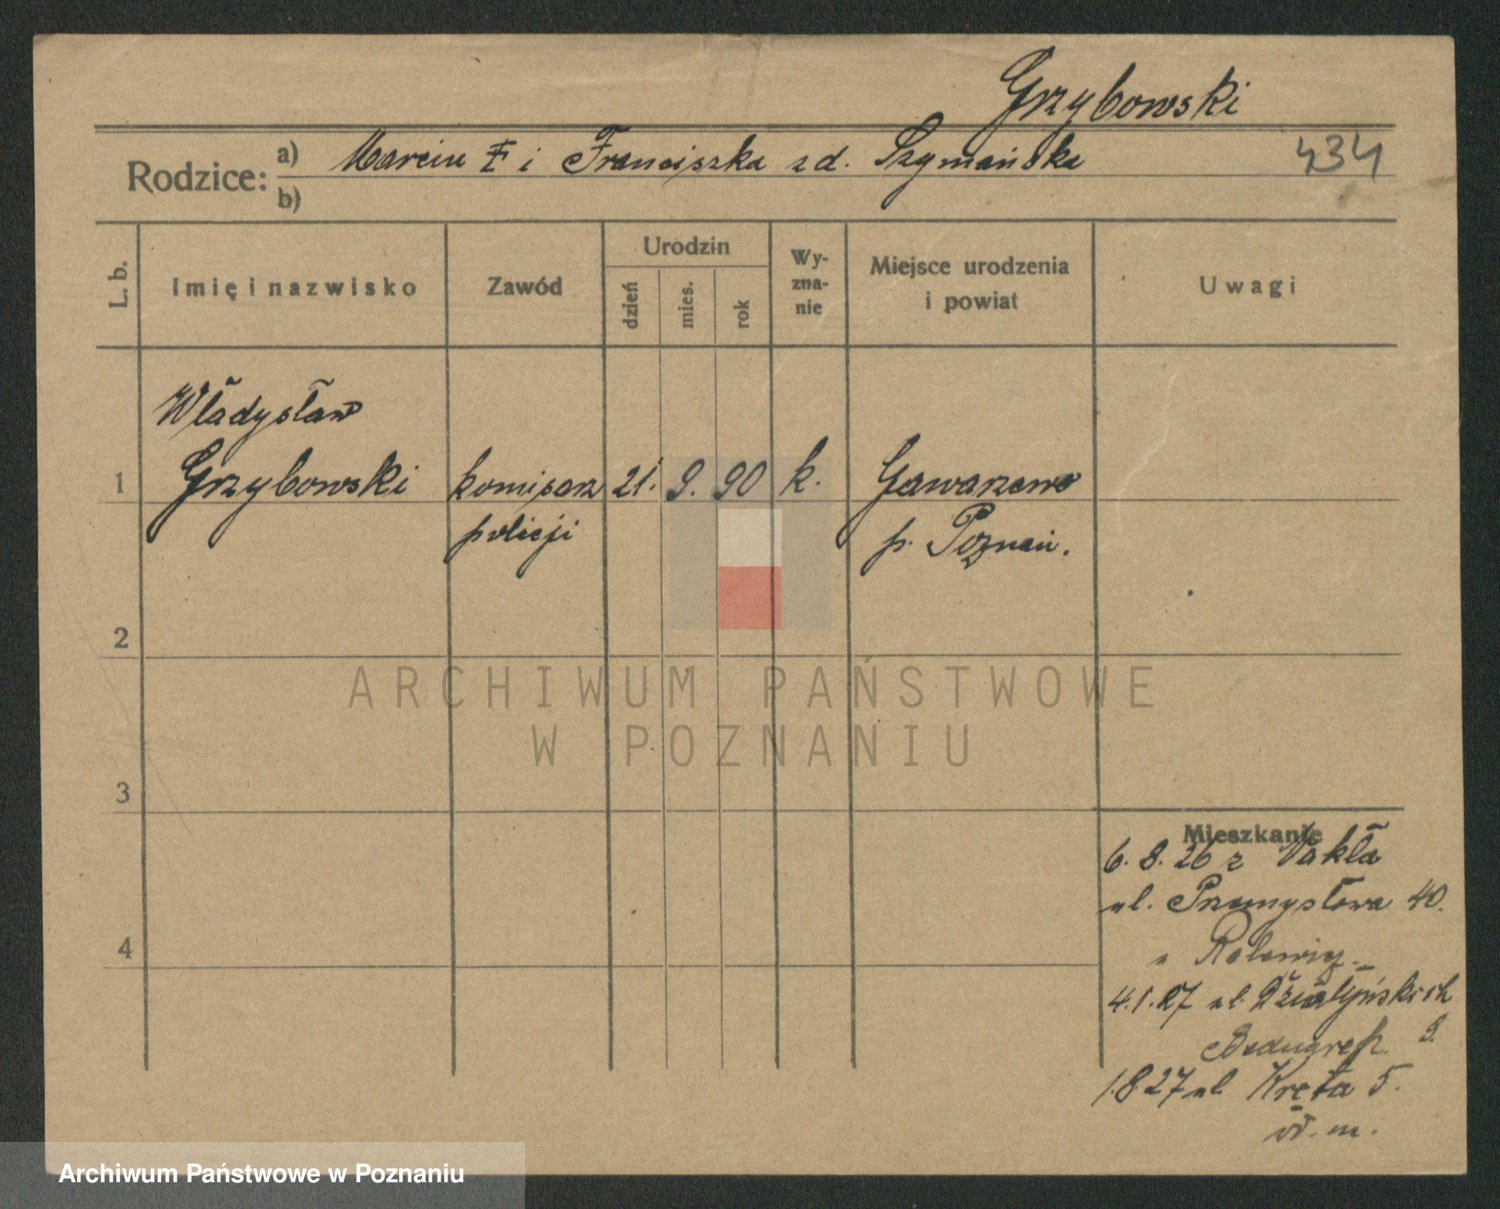 Grzybowski
Rodzice: a) Marcin i Franciszka z d. Szymańska
434
b)
L. b.
Imię i nazwisko
Zawód
Urodzin
dzień
mies.
rok
Wy-
zna-
nie
Miejsce urodzenia
i powiat
Uwagi
Władysław
1 Grzybowski komisarz 21. 9. 90 k. Gawarzewo
policji p. Poznań.
2
ARCHIWUM PAŃSTWOWE
W POZNANIU
3
Mieszkanie
6. 8. 26 z Nakła
ul. Przemysłowa 40.
4
4.1.27 ul. Działyńskich
8.
1.8.27 ul. Kręta 5.
wł. m.
Archiwum Państwowe w Poznaniu